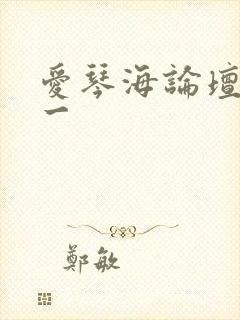 愛琴海論壇
一
鄭敏